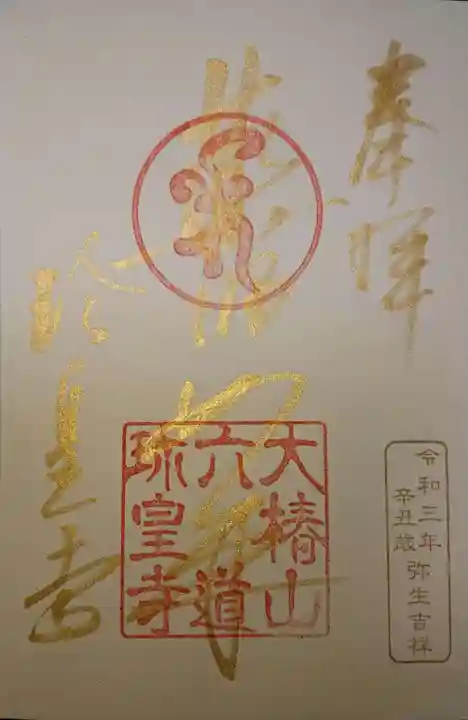 奉拝
大椿山
六道
珎皇寺
珍皇寺
令和三年
辛丑歳弥生吉祥